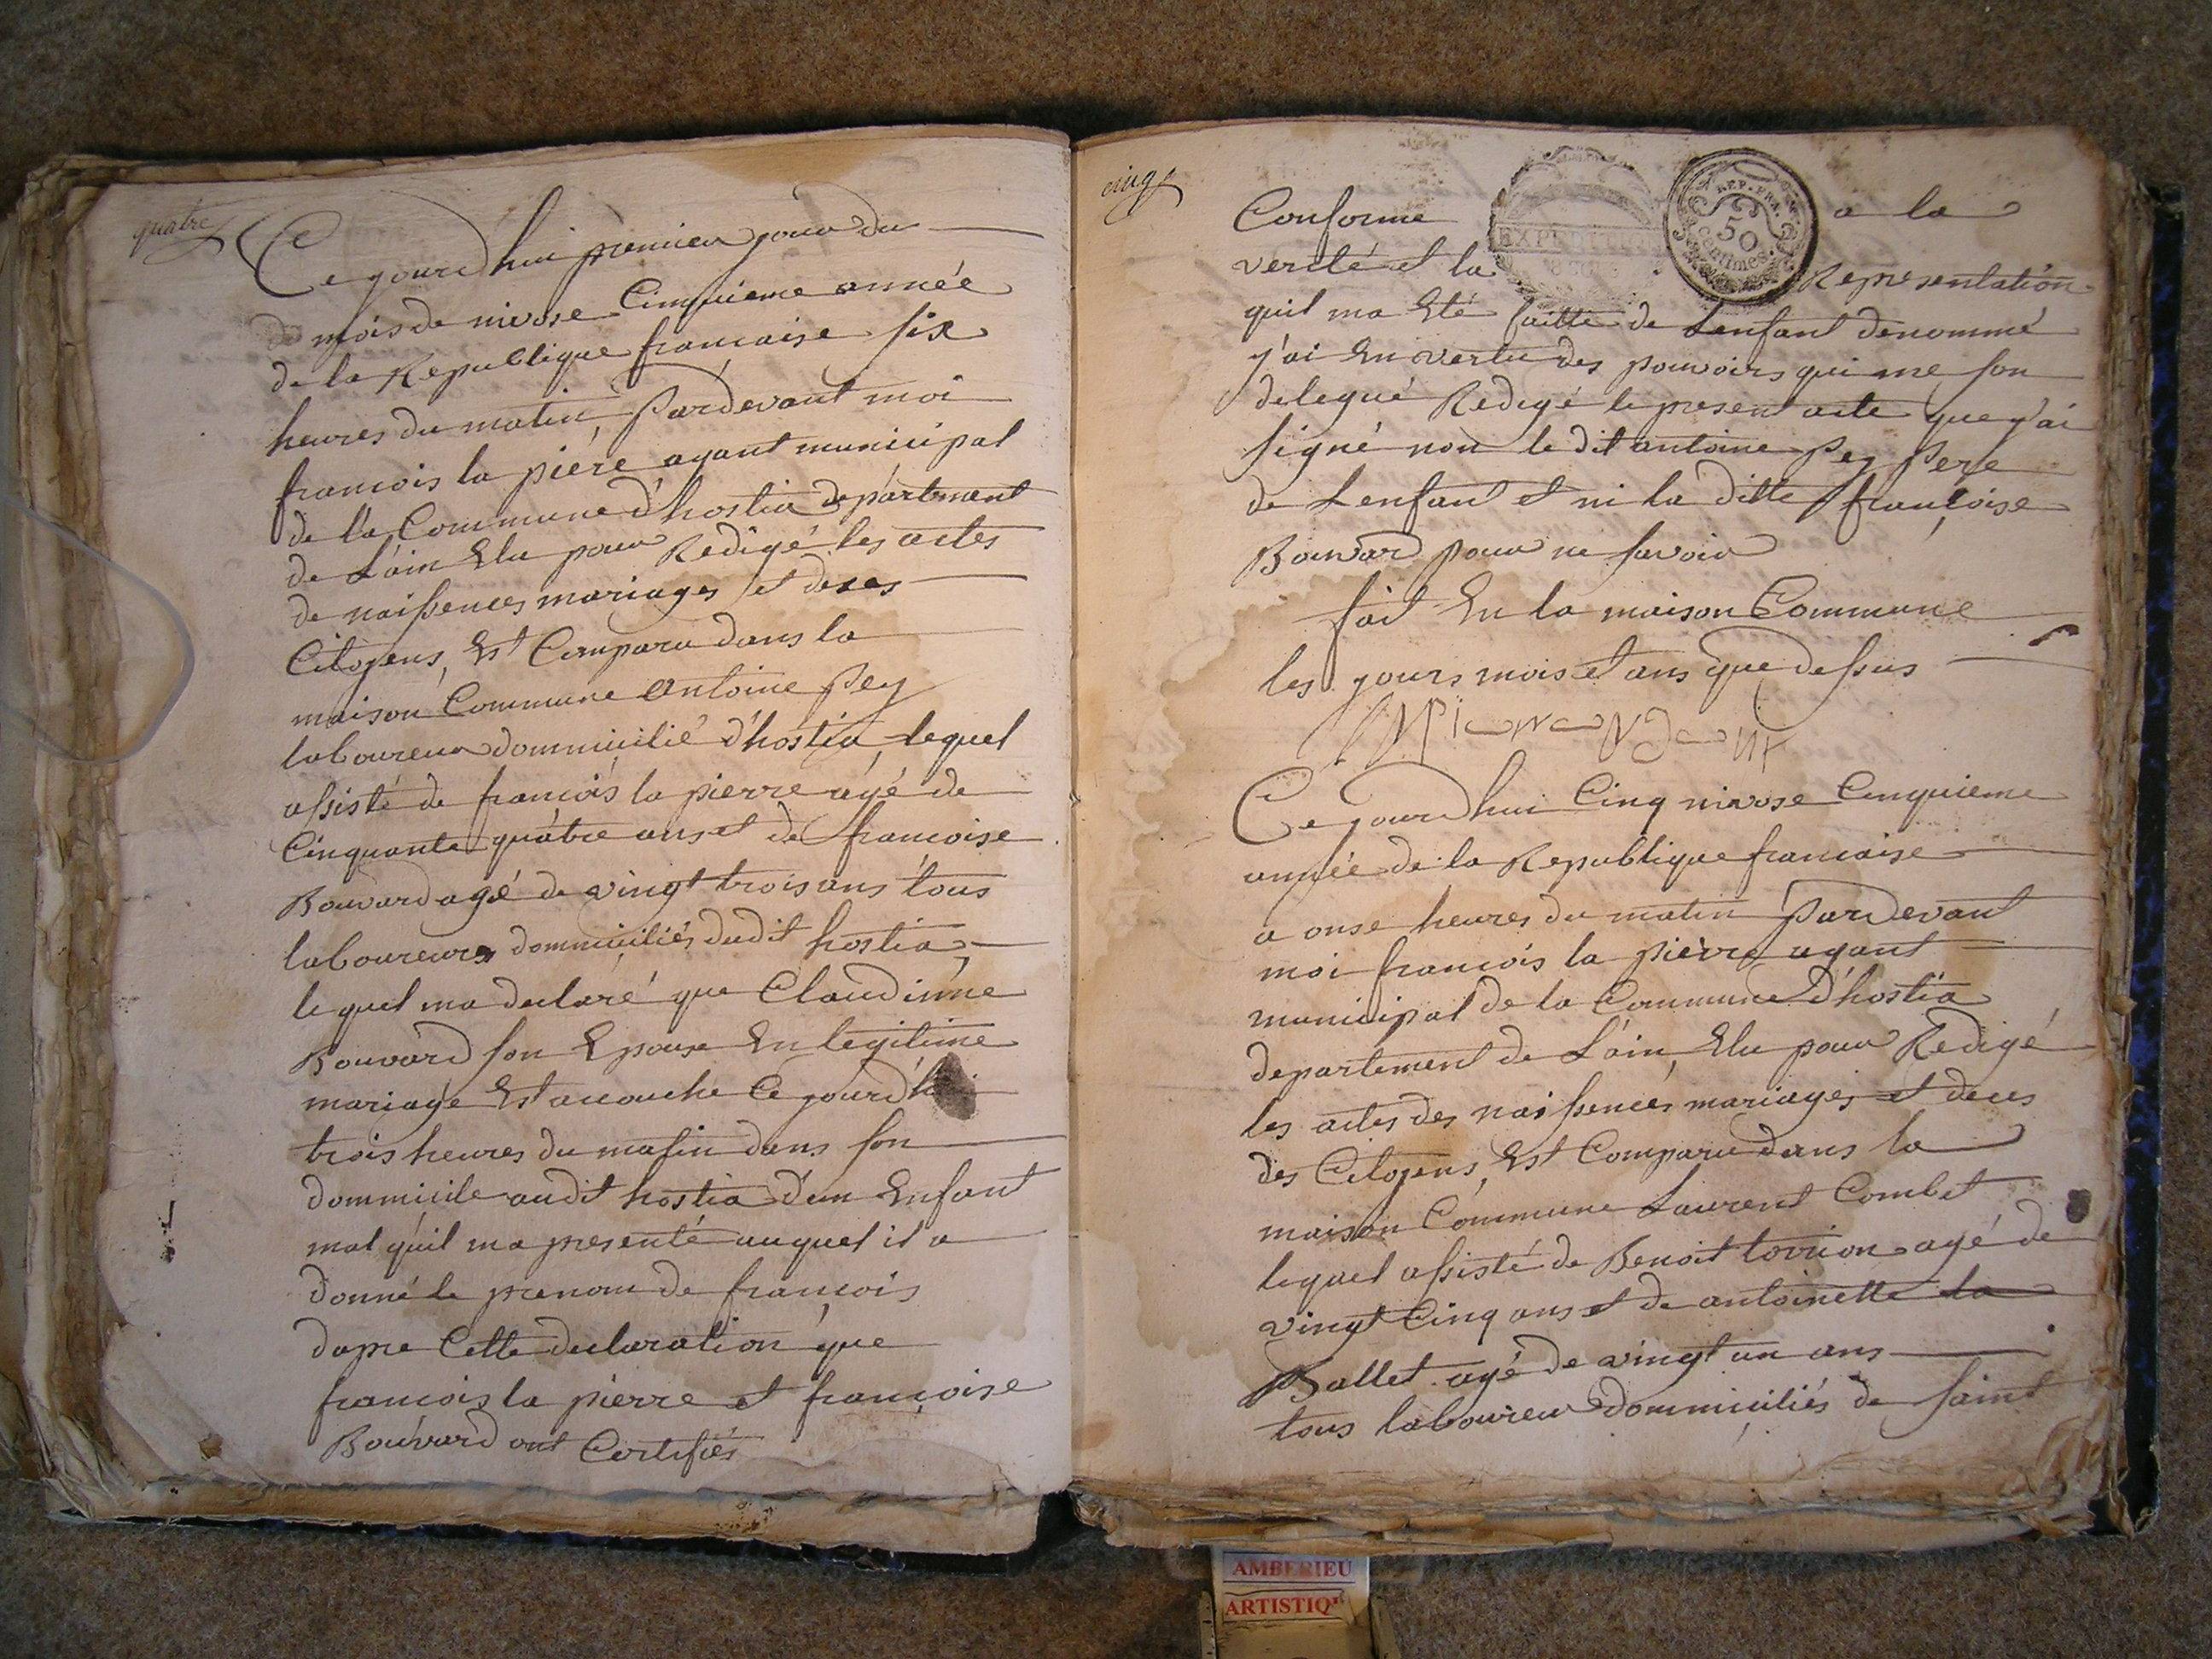 quatre
Ce jourdhui premier jour du
de mois de nivose Cinquieme année
de la Republique francaise six
heures du matin, Pardevant moi
francois la piere agant municipal
de la Commune d'hostia departmant
de L'ain Elu pour Redigé les actes
de naissences mariages et deces
Citoyens, Est Comparu dans la
maison Commune antoine Pey
laboureur dommicilié d'hostia, lequel
assisté de francois la pierre agé de
Cinquante quatre ans et de francoise
Bouvard agé de vingt trois ans tous
laboureurs dommiciliés dudit hostia,
lequel ma declaré que Claudinne
Bouvard son Epouse En legitime
mariage Est acouche Ce jourdhui
trois heures du matin dans son
dommicile audit hostia d'un Enfant
mal qu'il ma presenté auquel il a
donné le prenom de françois
dapre Cette declaration que
francois la pierre et françoise
Bouvard ont Certifiés
cinq
Conforme a la
verité et la Representation
quil ma Eté faitte de Lenfant denommé
j'ai En vertu des pouvoirs qui me son
delegué Redigé le present acte que j'ai
signé non le dit antoine Pey Pere
de Lenfant et ni la ditte françoise
Bouvard pour ne savoir
REP. FRA.
50
centimes.
fait En la maison Commune
les jours mois et ans que dessus
Ce jourdhui Cinq nivose Cinquieme
année de la Republique francaise
a onse heures du matin Pardevant
moi francois la pierre agant
municipal de la Commune d'hostia
departement de L'ain, Elu pour Redigé
les actes des naissences mariages et deces
des Citoyens, Est Comparu dans la
maison Commune Laurent Combet
lequel assisté de Benoit agé de
vingt Cinq ans et de antoinette la
Ballet agé de vingt un ans
tous laboureur dommiciliés de saint
AMBERIEU
ARTISTIQ